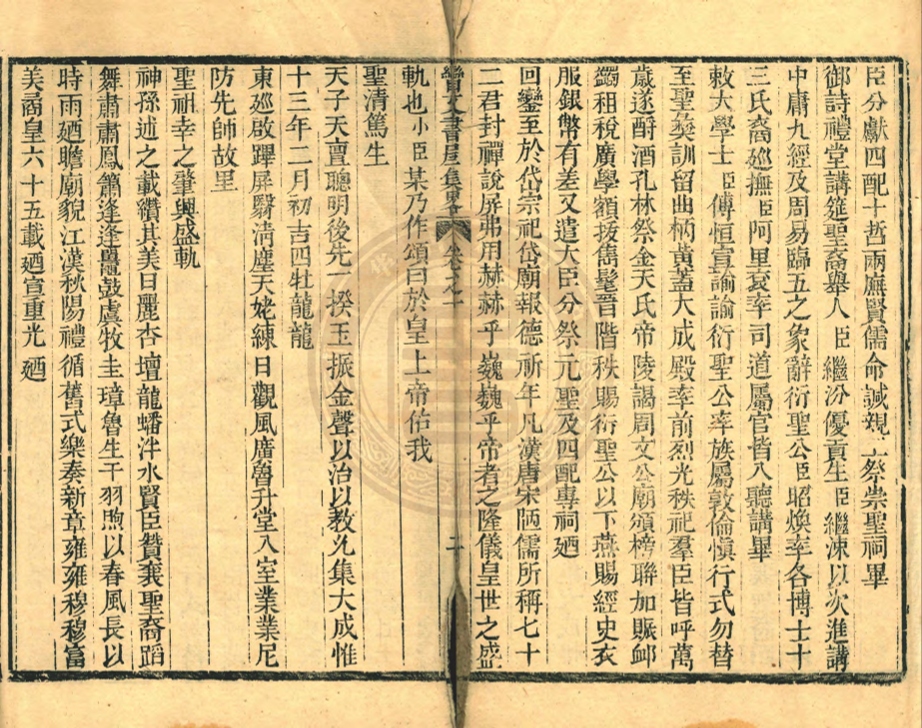 臣分獻四配十哲兩廡賢儒命諴親王祭崇聖祠畢
御詩禮堂講筵聖裔舉人臣繼汾優貢生臣繼涑以次進講
中庸九經及周易臨五之象辭衍聖公臣昭煥率各博士十
三氏裔廵撫臣阿里袞率司道屬官皆入聽講畢
敕大學士臣傅恒宣諭諭衍聖公率族屬敦倫愼行式勿替
至聖彝訓留曲柄黃蓋大成殿率前烈光秩祀羣臣皆呼萬
歲遂酹酒孔林祭金天氏帝陵謁周文公廟頒榜聯加賑䘏
蠲租稅廣學額拔雋髦晉階秩賜衍聖公以下燕賜經史衣
服銀幣有差又遣大臣分祭元聖及四配專祠廼
回鑾至於岱宗祀岱廟報德祈年凡漢唐宋陋儒所稱七十
二君封禪說屏弗用赫赫乎巍巍乎帝者之隆儀皇世之盛
書屋集 二
軌也小臣某乃作頌曰於皇上帝佑我
聖清篤生
天子天亶聰明後先一揆玉振金聲以治以教允集大成惟
十三年二月初吉四牡龍龍
東廵啟蹕屏翳淸塵天姥練日觀風廣魯升堂入室業業尼
防先師故里
聖祖幸之肇興盛軌
神孫述之載纘其美日麗杏壇龍蟠泮水賢臣贊襄聖裔蹈
舞肅肅鳳簫逢逢鼉鼓虞牧圭璋魯生干羽煦以春風長以
時雨廼瞻廟貌江漢秋陽禮循舊式樂奏新章雍雍穆穆富
美裔皇六十五載廼宣重光廼